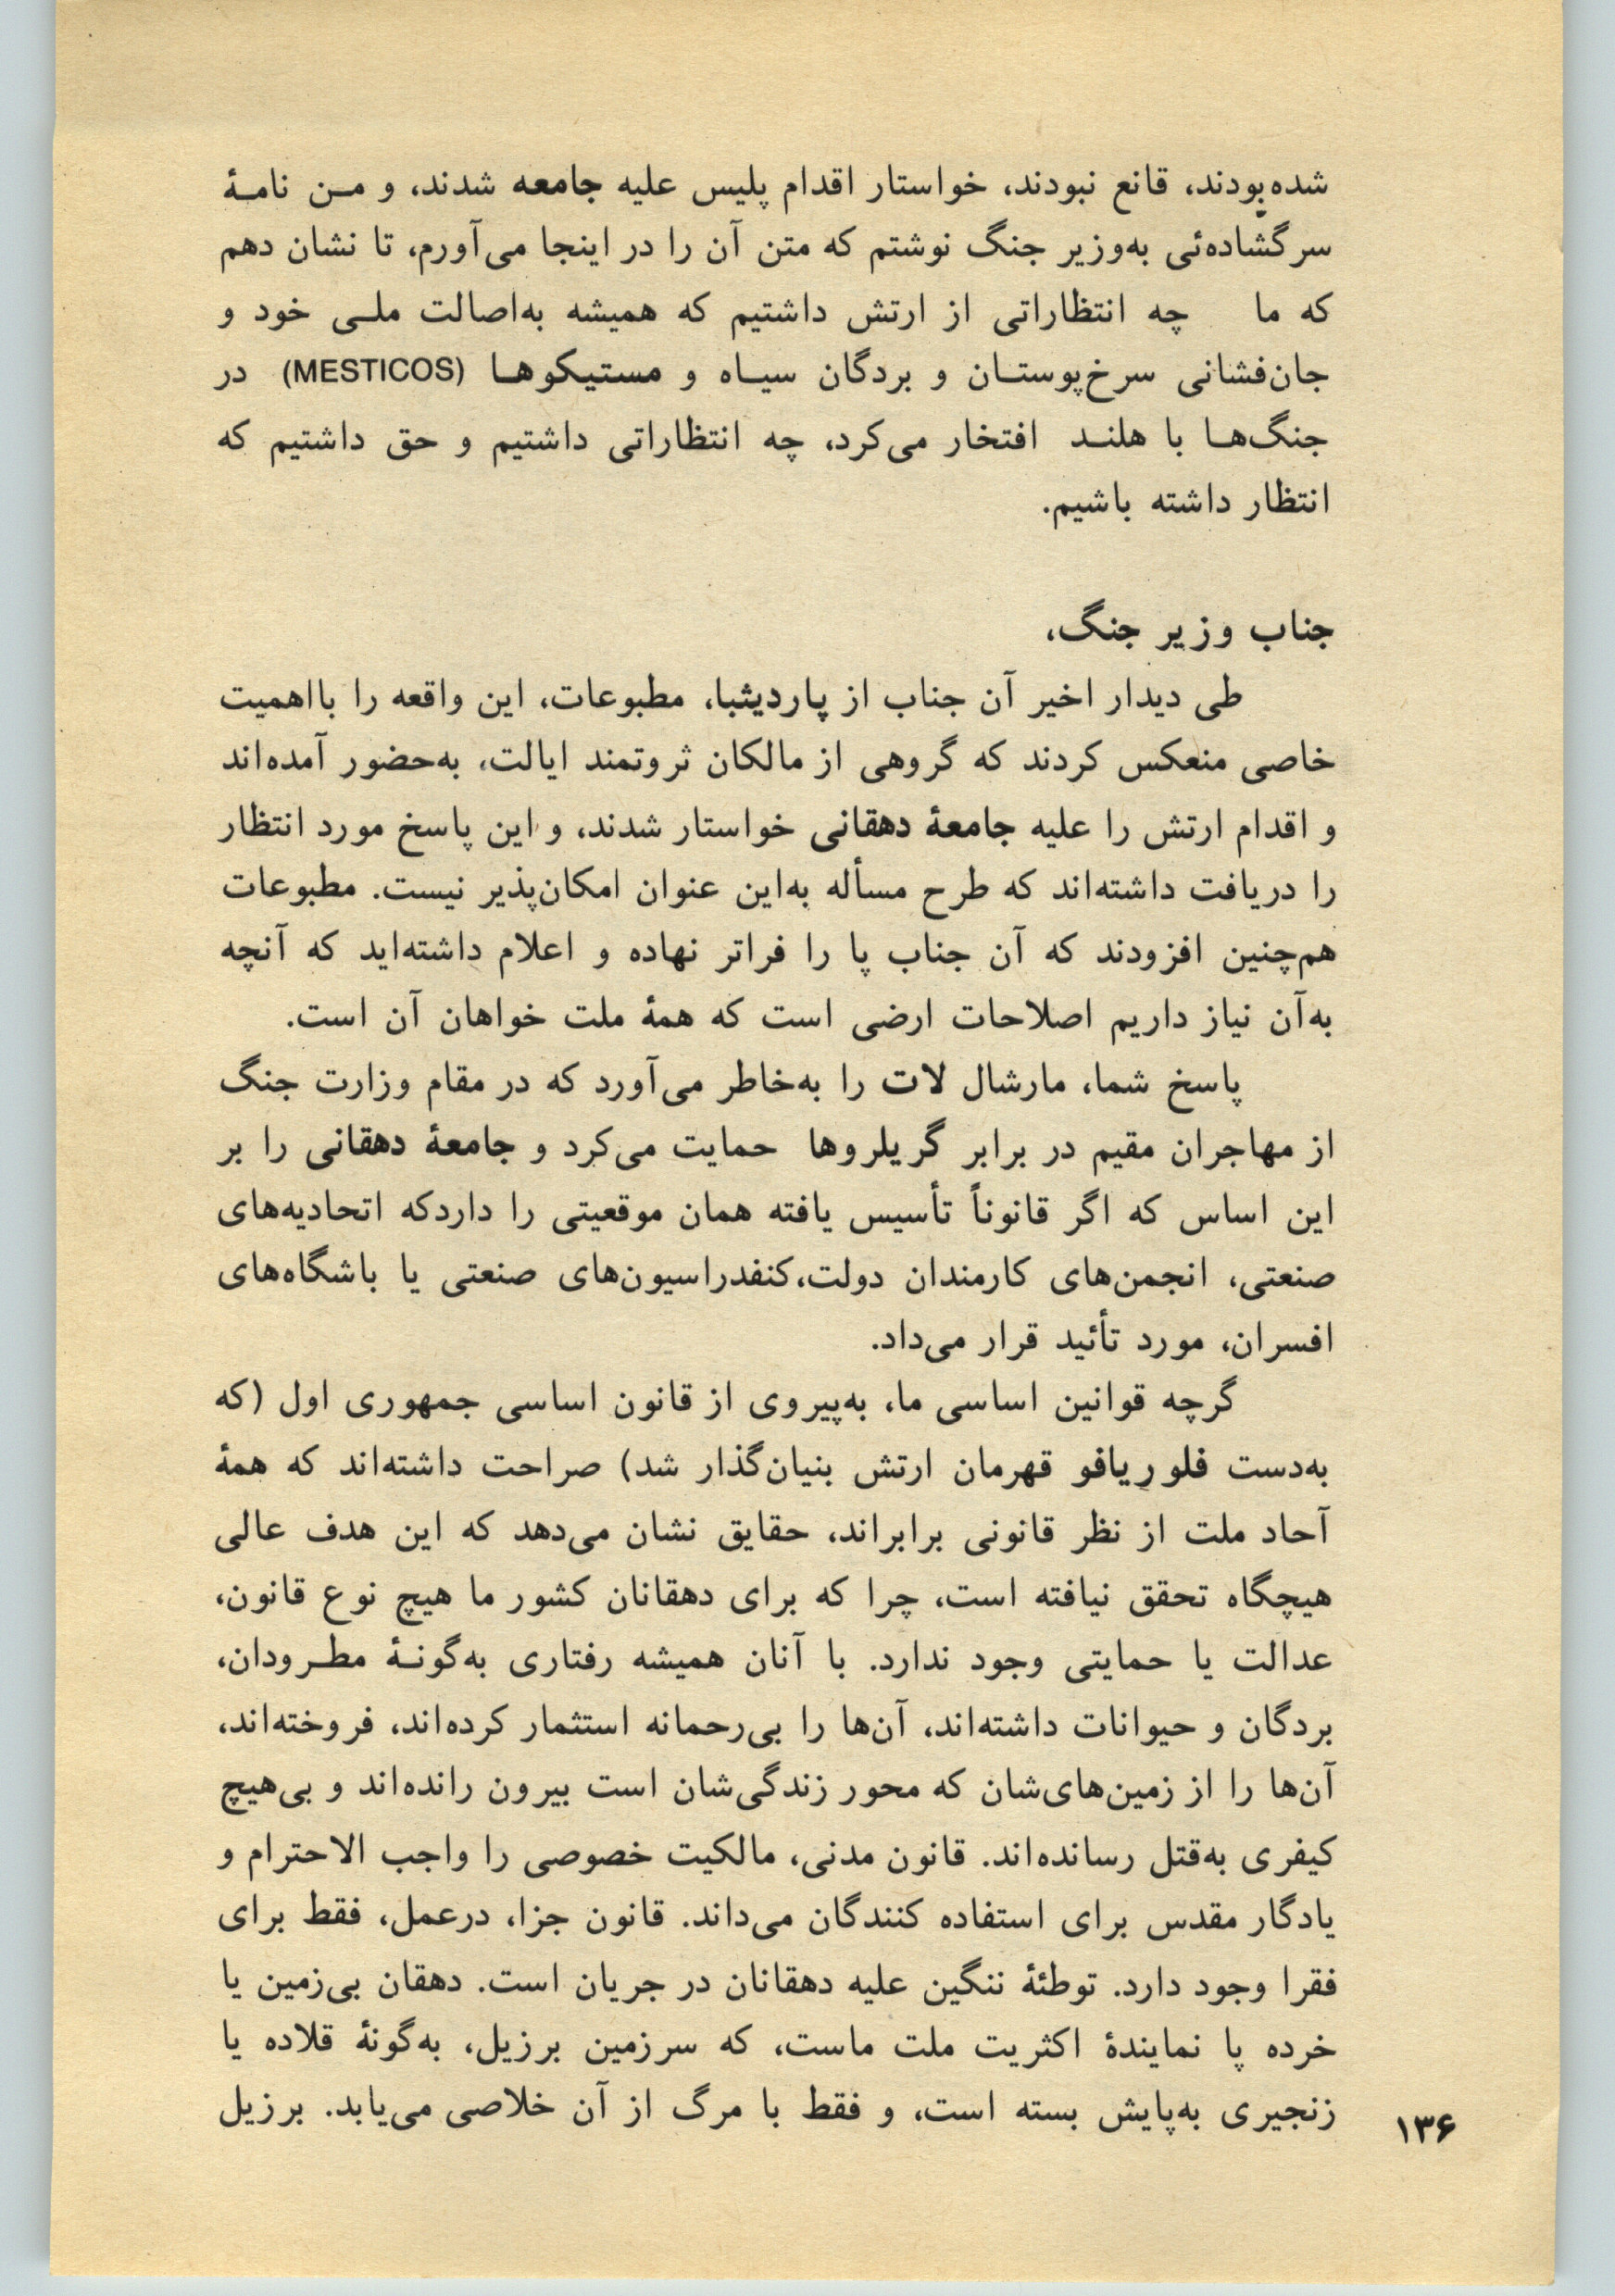 شده‌بودند، قانع نبودند، خواستار اقدام پلیس علیه جامعه شدند، و مـن نامـۀ
سرگشاده‌ئی به‌وزیر جنگ نوشتم که متن آن را در اینجا می‌آورم، تا نشان دهم
که ما چه انتظاراتی از ارتش داشتیم که همیشه به‌اصالت ملـی خود و
جان‌فشانی سرخ‌پوستـان و بردگان سیـاه و مستیکوهـا (MESTICOS) در
جنگ‌هـا با هلنـد افتخار می‌کرد، چه انتظاراتی داشتیم و حق داشتیم که
انتظار داشته باشیم.
جناب وزیر جنگ،
طی دیدار اخیر آن جناب از پاردیثبا، مطبوعات، این واقعه را بااهمیت
خاصی منعکس کردند که گروهی از مالکان ثروتمند ایالت، به‌حضور آمده‌اند
و اقدام ارتش را علیه جامعۀ دهقانی خواستار شدند، و این پاسخ مورد انتظار
را دریافت داشته‌اند که طرح مسأله به‌این عنوان امکان‌پذیر نیست. مطبوعات
هم‌چنین افزودند که آن جناب پا را فراتر نهاده و اعلام داشته‌اید که آنچه
به‌آن نیاز داریم اصلاحات ارضی است که همۀ ملت خواهان آن است.
پاسخ شما، مارشال لات را به‌خاطر می‌آورد که در مقام وزارت جنگ
از مهاجران مقیم در برابر گریلروها حمایت می‌کرد و جامعۀ دهقانی را بر
این اساس که اگر قانوناً تأسیس یافته همان موقعیتی را داردکه اتحادیه‌های
صنعتی، انجمن‌های کارمندان دولت،کنفدراسیون‌های صنعتی یا باشگاه‌های
افسران، مورد تأئید قرار می‌داد.
گرچه قوانین اساسی ما، به‌پیروی از قانون اساسی جمهوری اول (که
به‌دست فلوریافو قهرمان ارتش بنیان‌گذار شد) صراحت داشته‌اند که همۀ
آحاد ملت از نظر قانونی برابراند، حقایق نشان می‌دهد که این هدف عالی
هیچگاه تحقق نیافته است، چرا که برای دهقانان کشور ما هیچ نوع قانون،
عدالت یا حمایتی وجود ندارد. با آنان همیشه رفتاری به‌گونـۀ مطـرودان،
بردگان و حیوانات داشته‌اند، آن‌ها را بی‌رحمانه استثمار کرده‌اند، فروخته‌اند،
آن‌ها را از زمین‌های‌شان که محور زندگی‌شان است بیرون رانده‌اند و بی‌هیچ
کیفری به‌قتل رسانده‌اند. قانون مدنی، مالکیت خصوصی را واجب الاحترام و
یادگار مقدس برای استفاده کنندگان می‌داند. قانون جزا، درعمل، فقط برای
فقرا وجود دارد. توطئۀ ننگین علیه دهقانان در جریان است. دهقان بی‌زمین یا
خرده پا نمایندۀ اکثریت ملت ماست، که سرزمین برزیل، به‌گونۀ قلاده یا
زنجیری به‌پایش بسته است، و فقط با مرگ از آن خلاصی می‌یابد. برزیل
۱۳۶